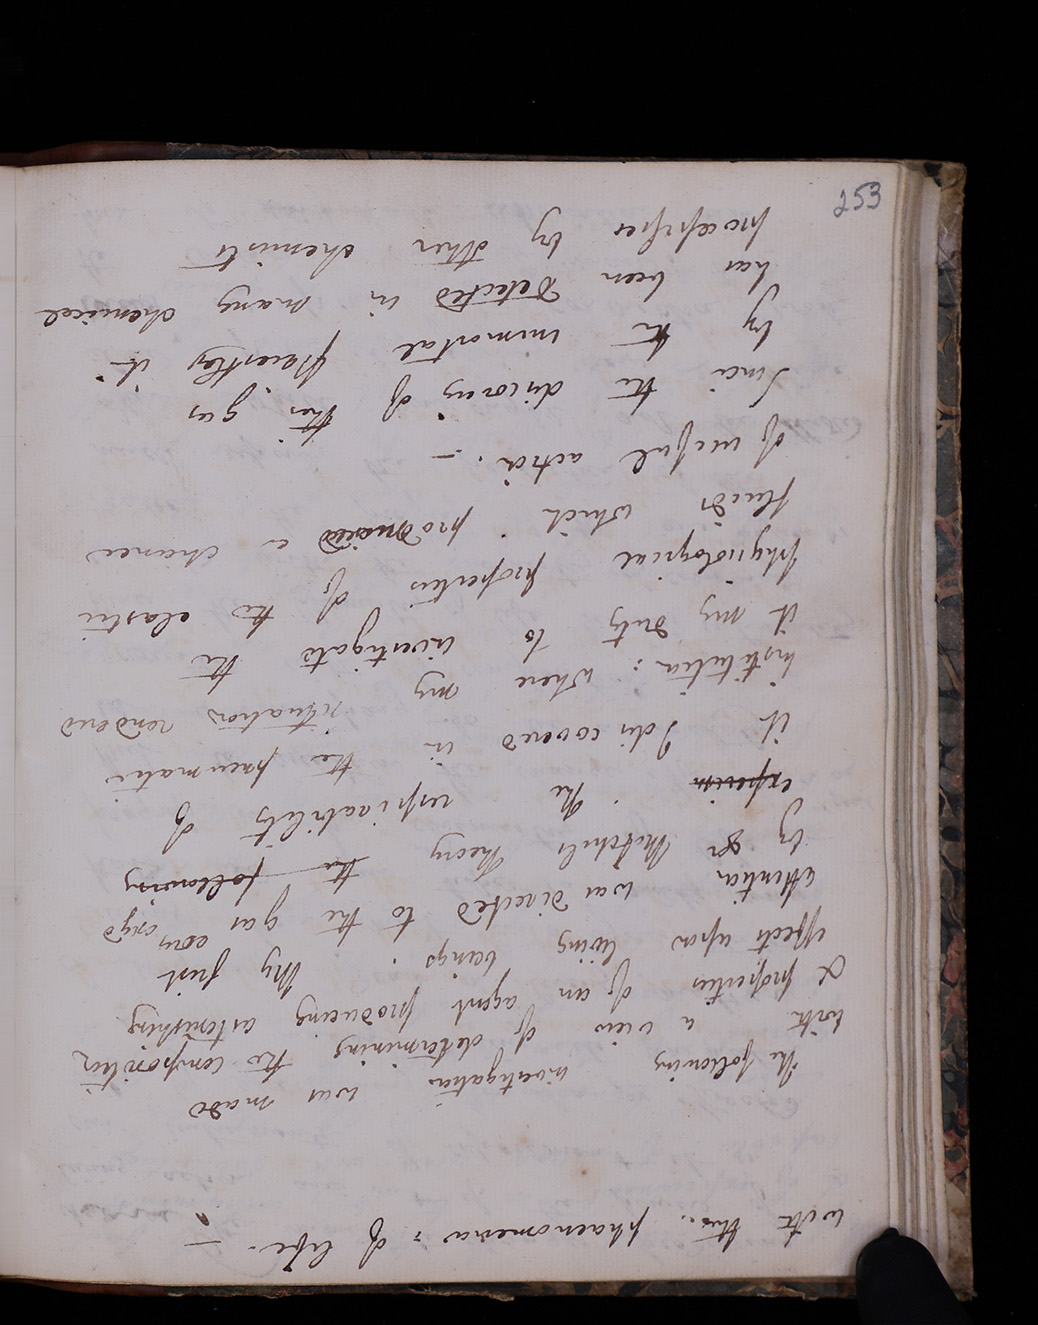 253
with the phaenomena of life. —
The following investigation was made
with a view of determining the composition
& properties of an agent producing astonishing
effects upon living beings. My first
attention was directed to the gas oxyd
by Dr Mitchills Theory the following
experim The respirability of
it I discovered in the pneumatic
institution; where my situation rendered
it my duty to investigate the
physiological properties of the elastic
fluids which produced a chance
of useful action. —
Since the discovery of this gas
by the immortal Priestley it
has been detected in many chemical
processes by other chemists